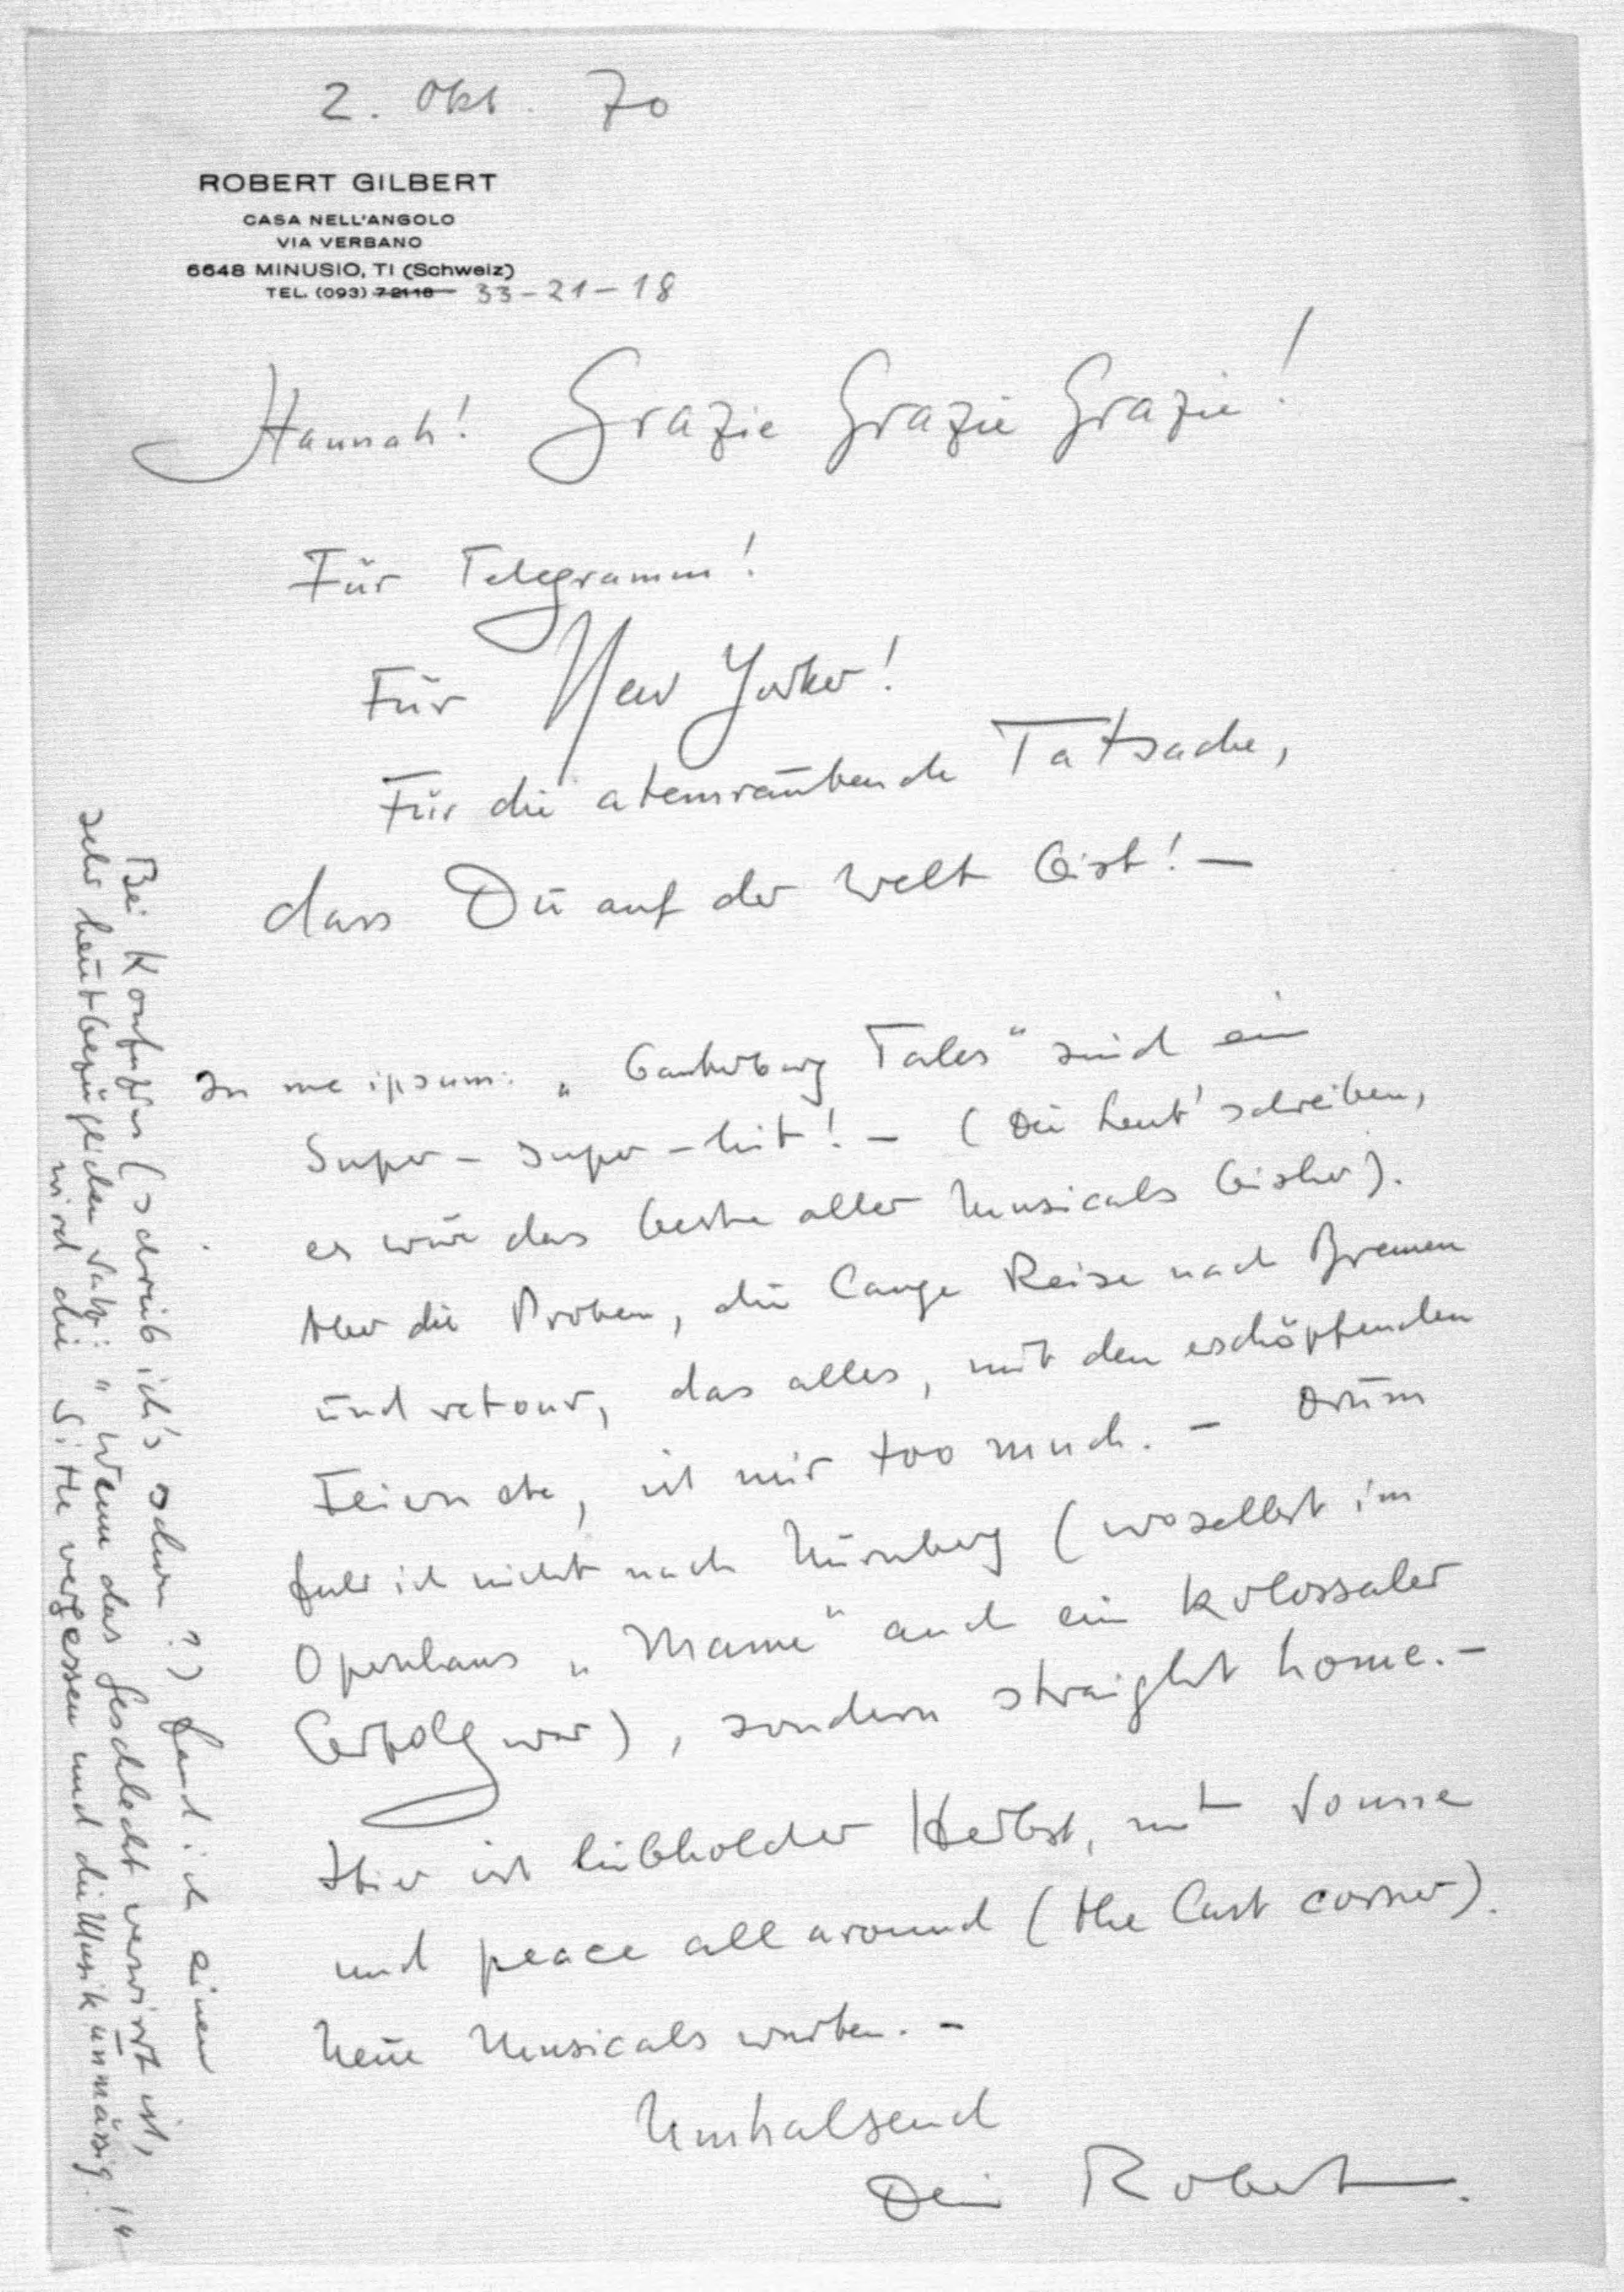 2. Okt. 70
ROBERT GILBERT
CASA NELL'ANGOLO
VIA VERBANO
6648 MINUSIO, TI (Schweiz)
TEL. (093) 72118 33-21-18
Hannah! Grazie Grazie Grazie!
Für Telegramm!
Für New Yorker!
Für die atemraubende Tatsache,
dass Du auf der Welt bist! —
In me ipsum: „Canterbury Tales" sind ein
Super-super-hit! – (Die Leut' schreiben,
es wär das beste aller Musicals bisher).
Aber die Proben, die lange Reise nach Bremen
und retour, das alles, mit den erschöpfenden
Feiern etc, ist mir too much. – Drum
fuhr ich nicht nach Nürnberg (woselbst im
Opernhaus „Mame" auch ein kolossaler
Erfolg war), sondern straight home. –
Hier ist liebholder Herbst, mit Sonne
und peace all around (the last corner).
Neue Musicals warten. –
Umhalsend
Dein Robert.
Bei Konfuzius (schrieb ich's schon?) fand ich einen
sehr heutbezüglichen Satz: „Wenn das Geschlecht verwirrt ist,
wird die Sitte vergessen und die Musik unmässig.!"